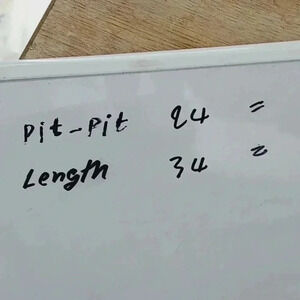 Pit-Pit 24 =
Length 34 =